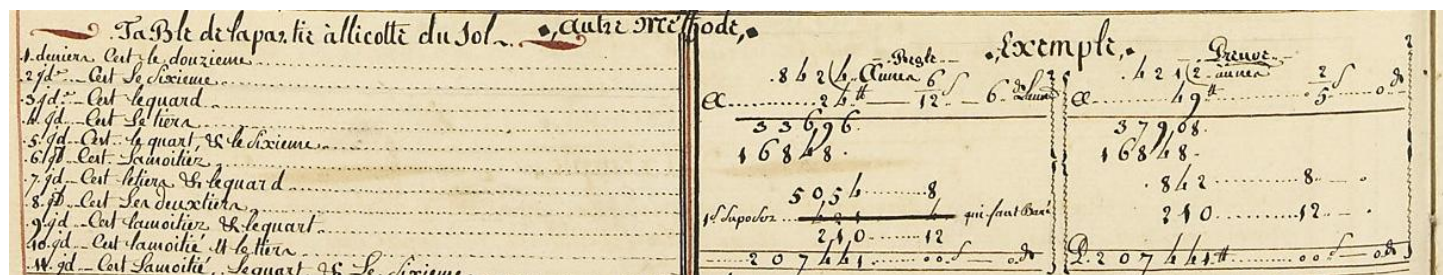 TaBle de la partie àllicotte du Sol.
1. deniers Cest le douzieme
2 jd.... Cest Le Sixieme
3 jd.... Cest le quard
4. jd... Cest Le tiers
5. jd... Cest le quart, & le Sixieme
6. jd... Cest Lamoitiez
7. jd... Cest letiers & lequard
8. jd... Cest Les deuxtiers
9. jd... Cest lamoitiez & lequart
10. jd... Cest lamoitié & le tiers
11. jd... Cest Lamoitié, lequart & Le Sixieme
Autre Méthode,
Exemple,
Regle
842 (4 Aunes 6
a 24 tt 12 s 6 d
336,96.
16848.
5054 8
1 s Suposez 421 4 qui faut Baré
210 12
207441 00 s d
Preuve
421 (2 aunes 2
a 49 tt 5 s 0 d
379,08.
16848.
842 8
210 12
P. 207441 tt 00 s 0 d